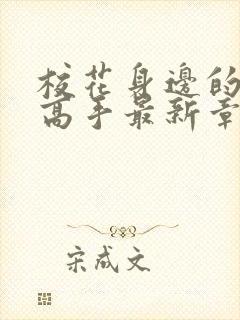 校花身邊的
高手最新章
宋成文